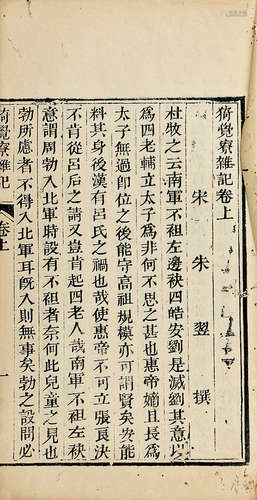 猗覺寮雜記卷上
宋 朱 翌 撰
杜牧之云南軍不袒左邊袂四皓安劉是滅劉其意以
為四老輔立太子為非何不思之甚也惠帝嫡且長為
太子無過卽位之後能守高祖規模亦可謂賢矣安能
料其身後漢有呂氏之禍也哉使惠帝不可立張良決
不肯從呂后之請又豈肯起四老人哉南軍不袒左袂
意謂周勃入北軍時設有不袒者奈何此兒童之見也
勃所慮者不得入北軍耳旣入則無事矣勃之設問必
猗覺寮雜記 卷上